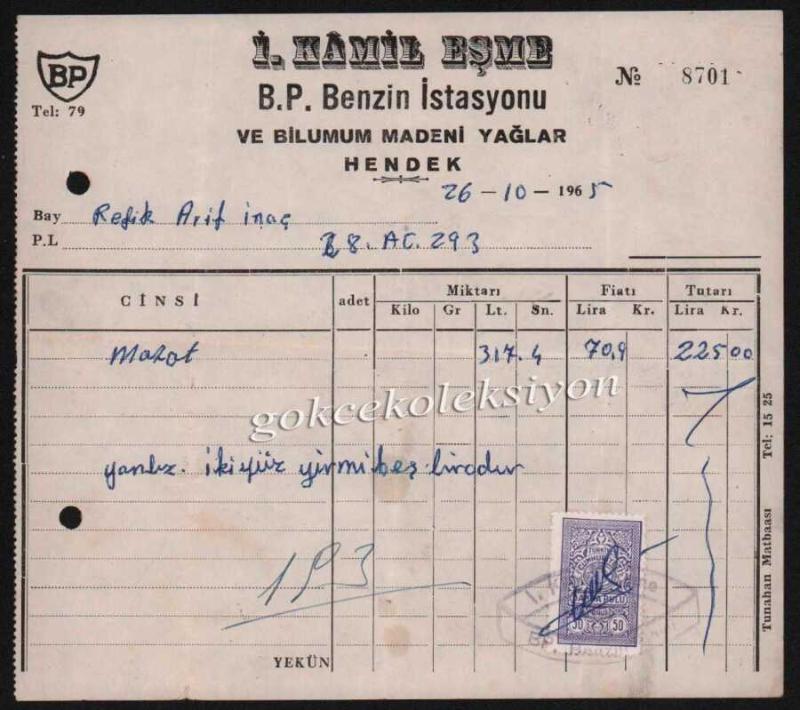 İ. KÂMİL EŞME
BP
B.P. Benzin İstasyonu
№ 8701
Tel: 79
VE BİLUMUM MADENİ YAĞLAR
HENDEK
26 - 10 - 1965
Bay Refik Arif inaç
P.L 8. AC. 293
CİNSİ adet Miktarı Fiatı Tutarı
Kilo Gr Lt. Sn. Lira Kr. Lira Kr.
Mazot 317.4 70,9 225 00
gokcekoleksiyon
yanlız. ikiyüz yirmibeş liradır
193
50 50
BP.
YEKÜN
Tunahan Matbaası Tel: 15 25